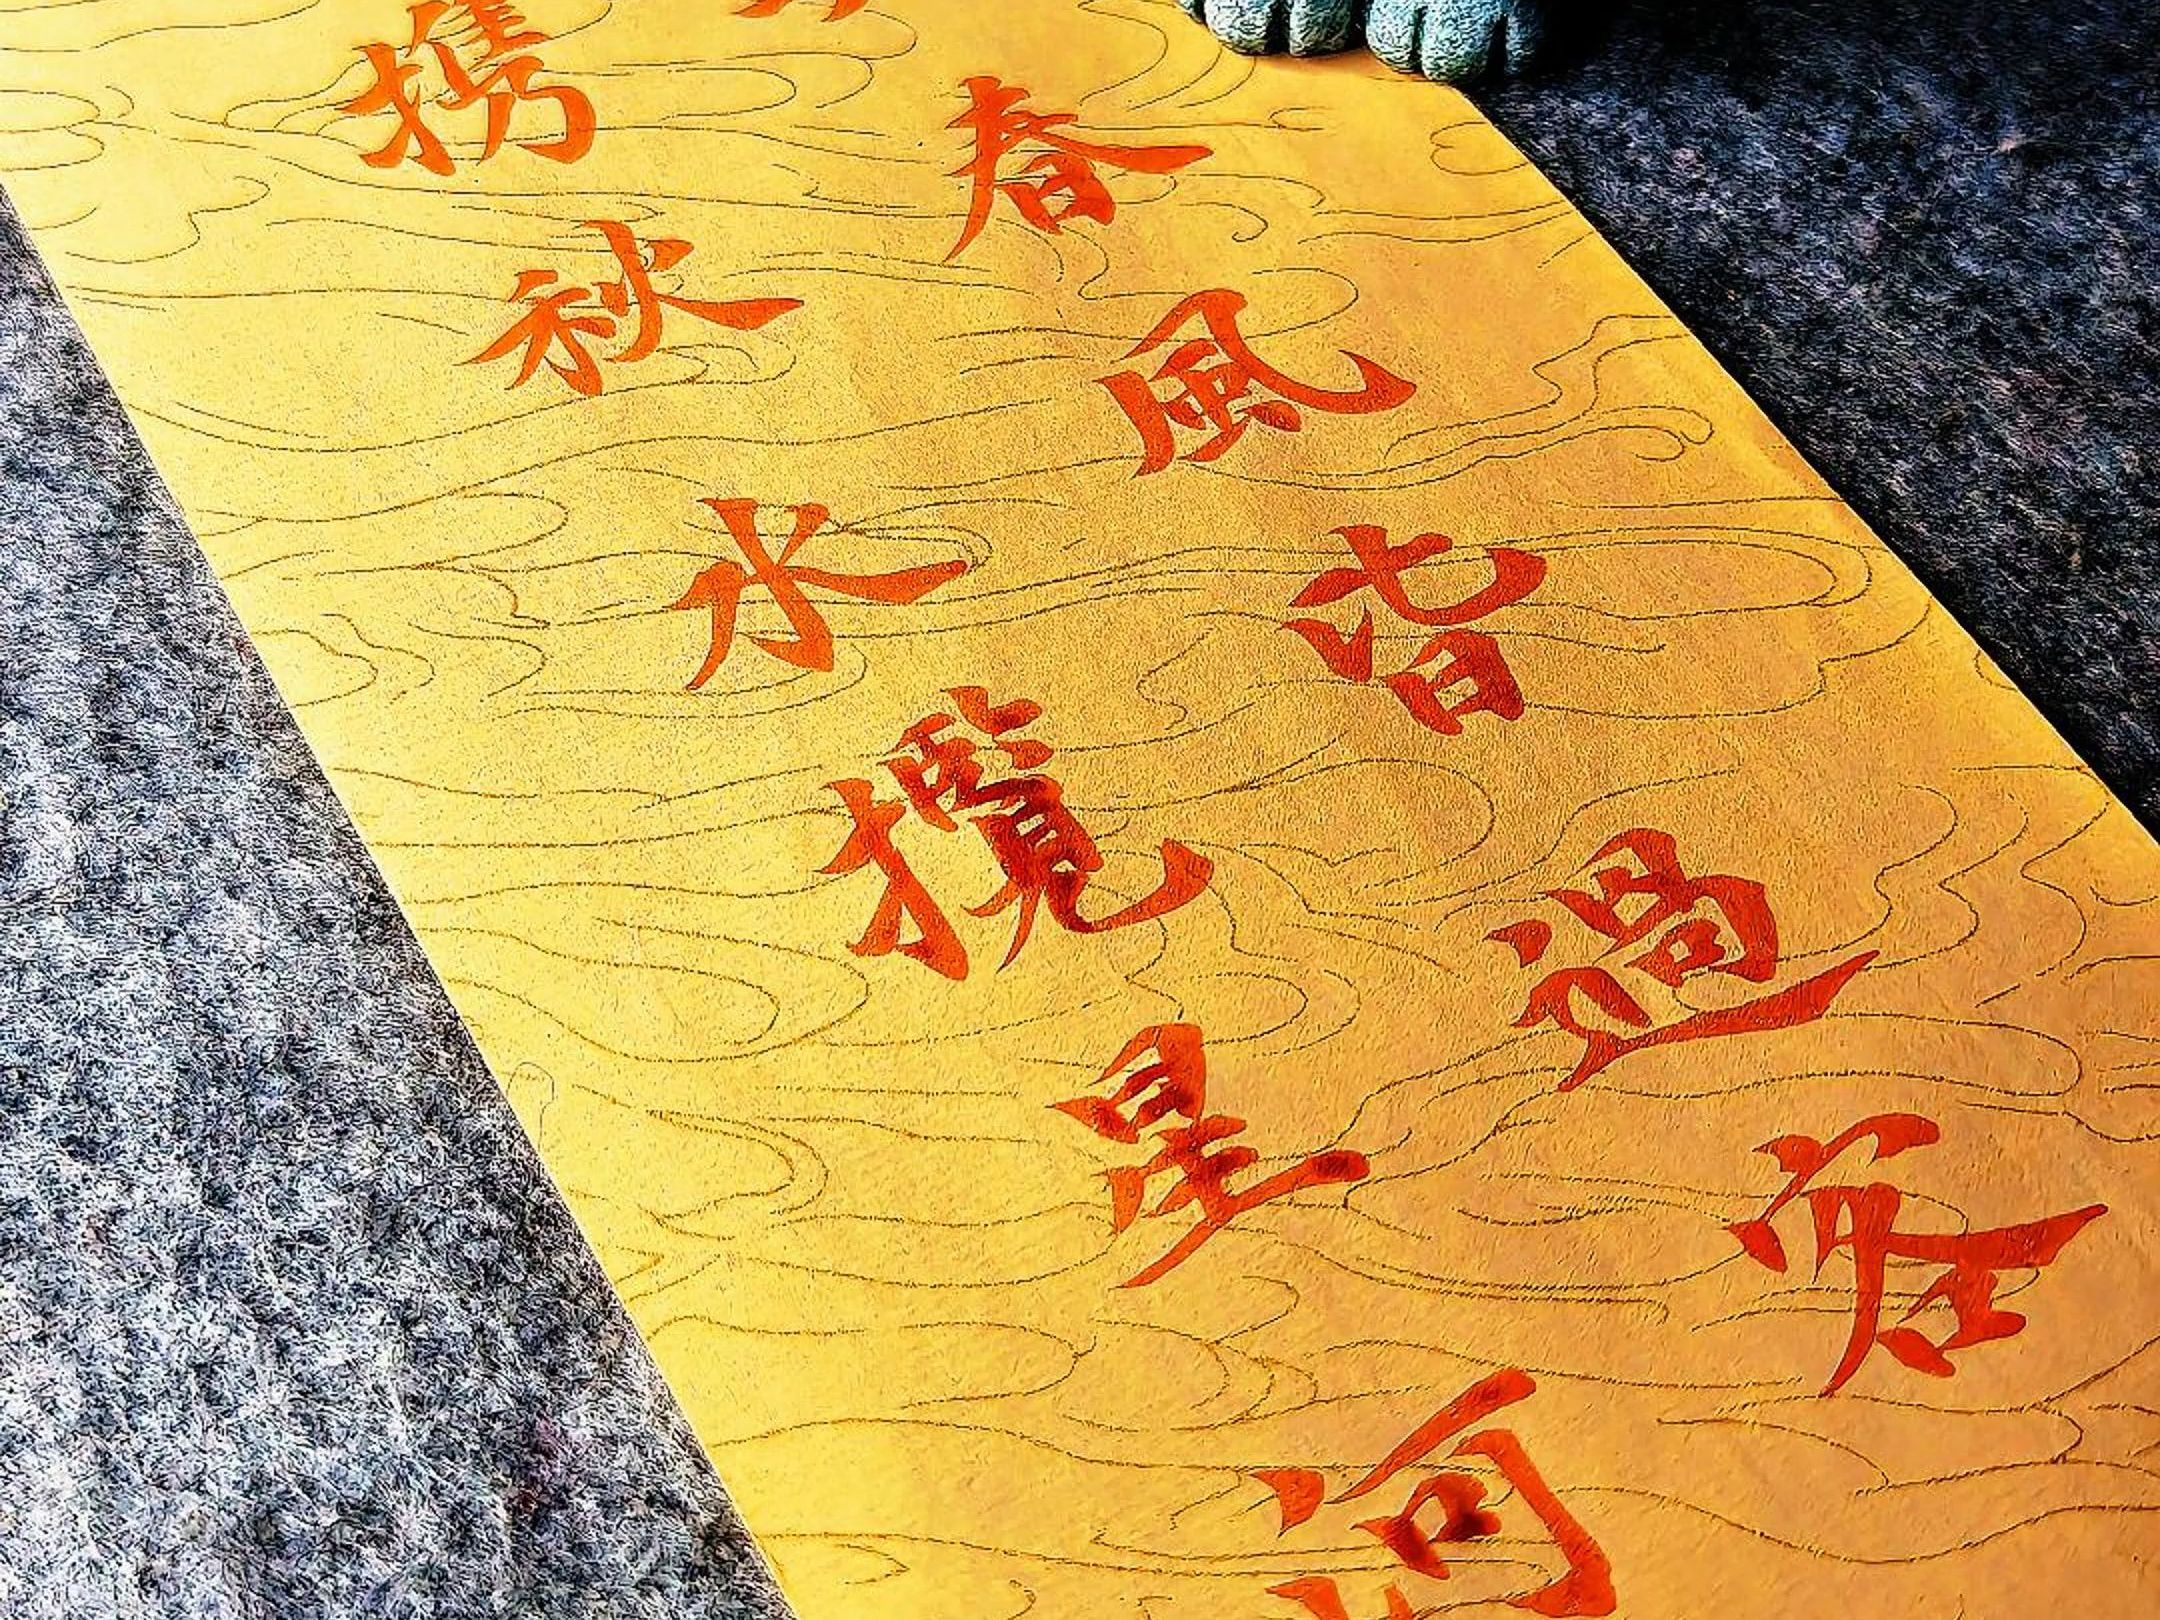 春風皆過客
攜秋水攬星河